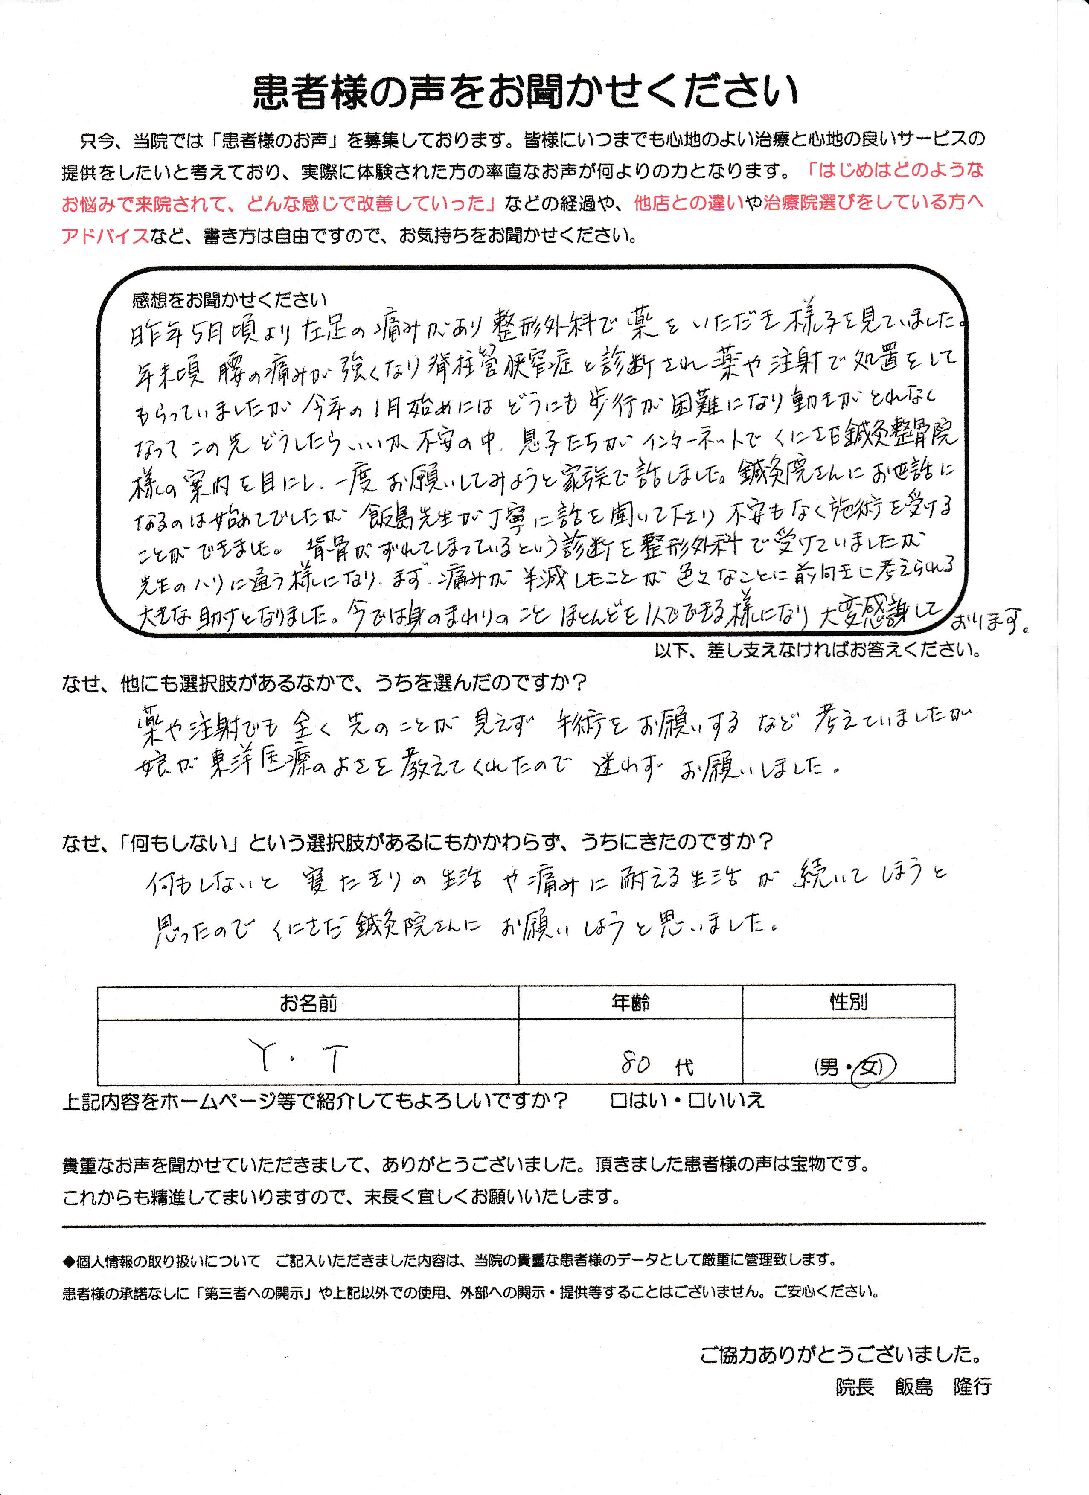 患者様の声をお聞かせください
只今、当院では「患者様のお声」を募集しております。皆様にいつまでも心地のよい治療と心地の良いサービスの
提供をしたいと考えており、実際に体験された方の率直なお声が何よりの力となります。「はじめはどのような
お悩みで来院されて、どんな感じで改善していった」などの経過や、他店との違いや治療院選びをしている方へ
アドバイスなど、書き方は自由ですので、お気持ちをお聞かせください。
感想をお聞かせください
昨年5月頃より左足の痛みがあり整形外科で薬をいただき様子を見ていました。
年末頃腰の痛みが強くなり脊柱管狭窄症と診断され薬や注射で処置をして
もらっていましたが今年の1月始めにはどうにも歩行が困難になり動きがとれなく
なってこの先どうしたらいいか不安の中、息子たちがインターネットでくにさだ鍼灸整骨院
様の案内を目にし、一度お願いしてみようと家族で話しました。鍼灸院さんにお世話に
なるのは始めてでしたが飯島先生が丁寧に話を聞いて下さり不安もなく施術を受ける
ことができました。背骨がずれてしまっているという診断を整形外科で受けていましたが
先生のハリに通う様になり、まず、痛みが半減したことが色々なことに前向きに考えられる
大きな助けとなりました。今では身のまわりのことほとんどを1人でできる様になり大変感謝して
おります。
以下、差し支えなければお答えください。
なぜ、他にも選択肢があるなかで、うちを選んだのですか?
薬や注射でも全く先のことが見えず手術をお願いするなど考えていましたが
娘が東洋医療のよさを教えてくれたので迷わずお願いしました。
なぜ、「何もしない」という選択肢があるにもかかわらず、うちにきたのですか?
何もしないと寝たきりの生活や痛みに耐える生活が続いてしまうと
思ったのでくにさだ鍼灸院さんにお願いしようと思いました。
お名前 年齢 性別
Y.T 80代 (男・女)
上記内容をホームページ等で紹介してもよろしいですか? □はい・□いいえ
貴重なお声を聞かせていただきまして、ありがとうございました。頂きました患者様の声は宝物です。
これからも精進してまいりますので、末長く宜しくお願いいたします。
◆個人情報の取り扱いについて ご記入いただきました内容は、当院の貴重な患者様のデータとして厳重に管理致します。
患者様の承諾なしに「第三者への開示」や上記以外での使用、外部への開示・提供等することはございません。ご安心ください。
ご協力ありがとうございました。
院長 飯島 隆行